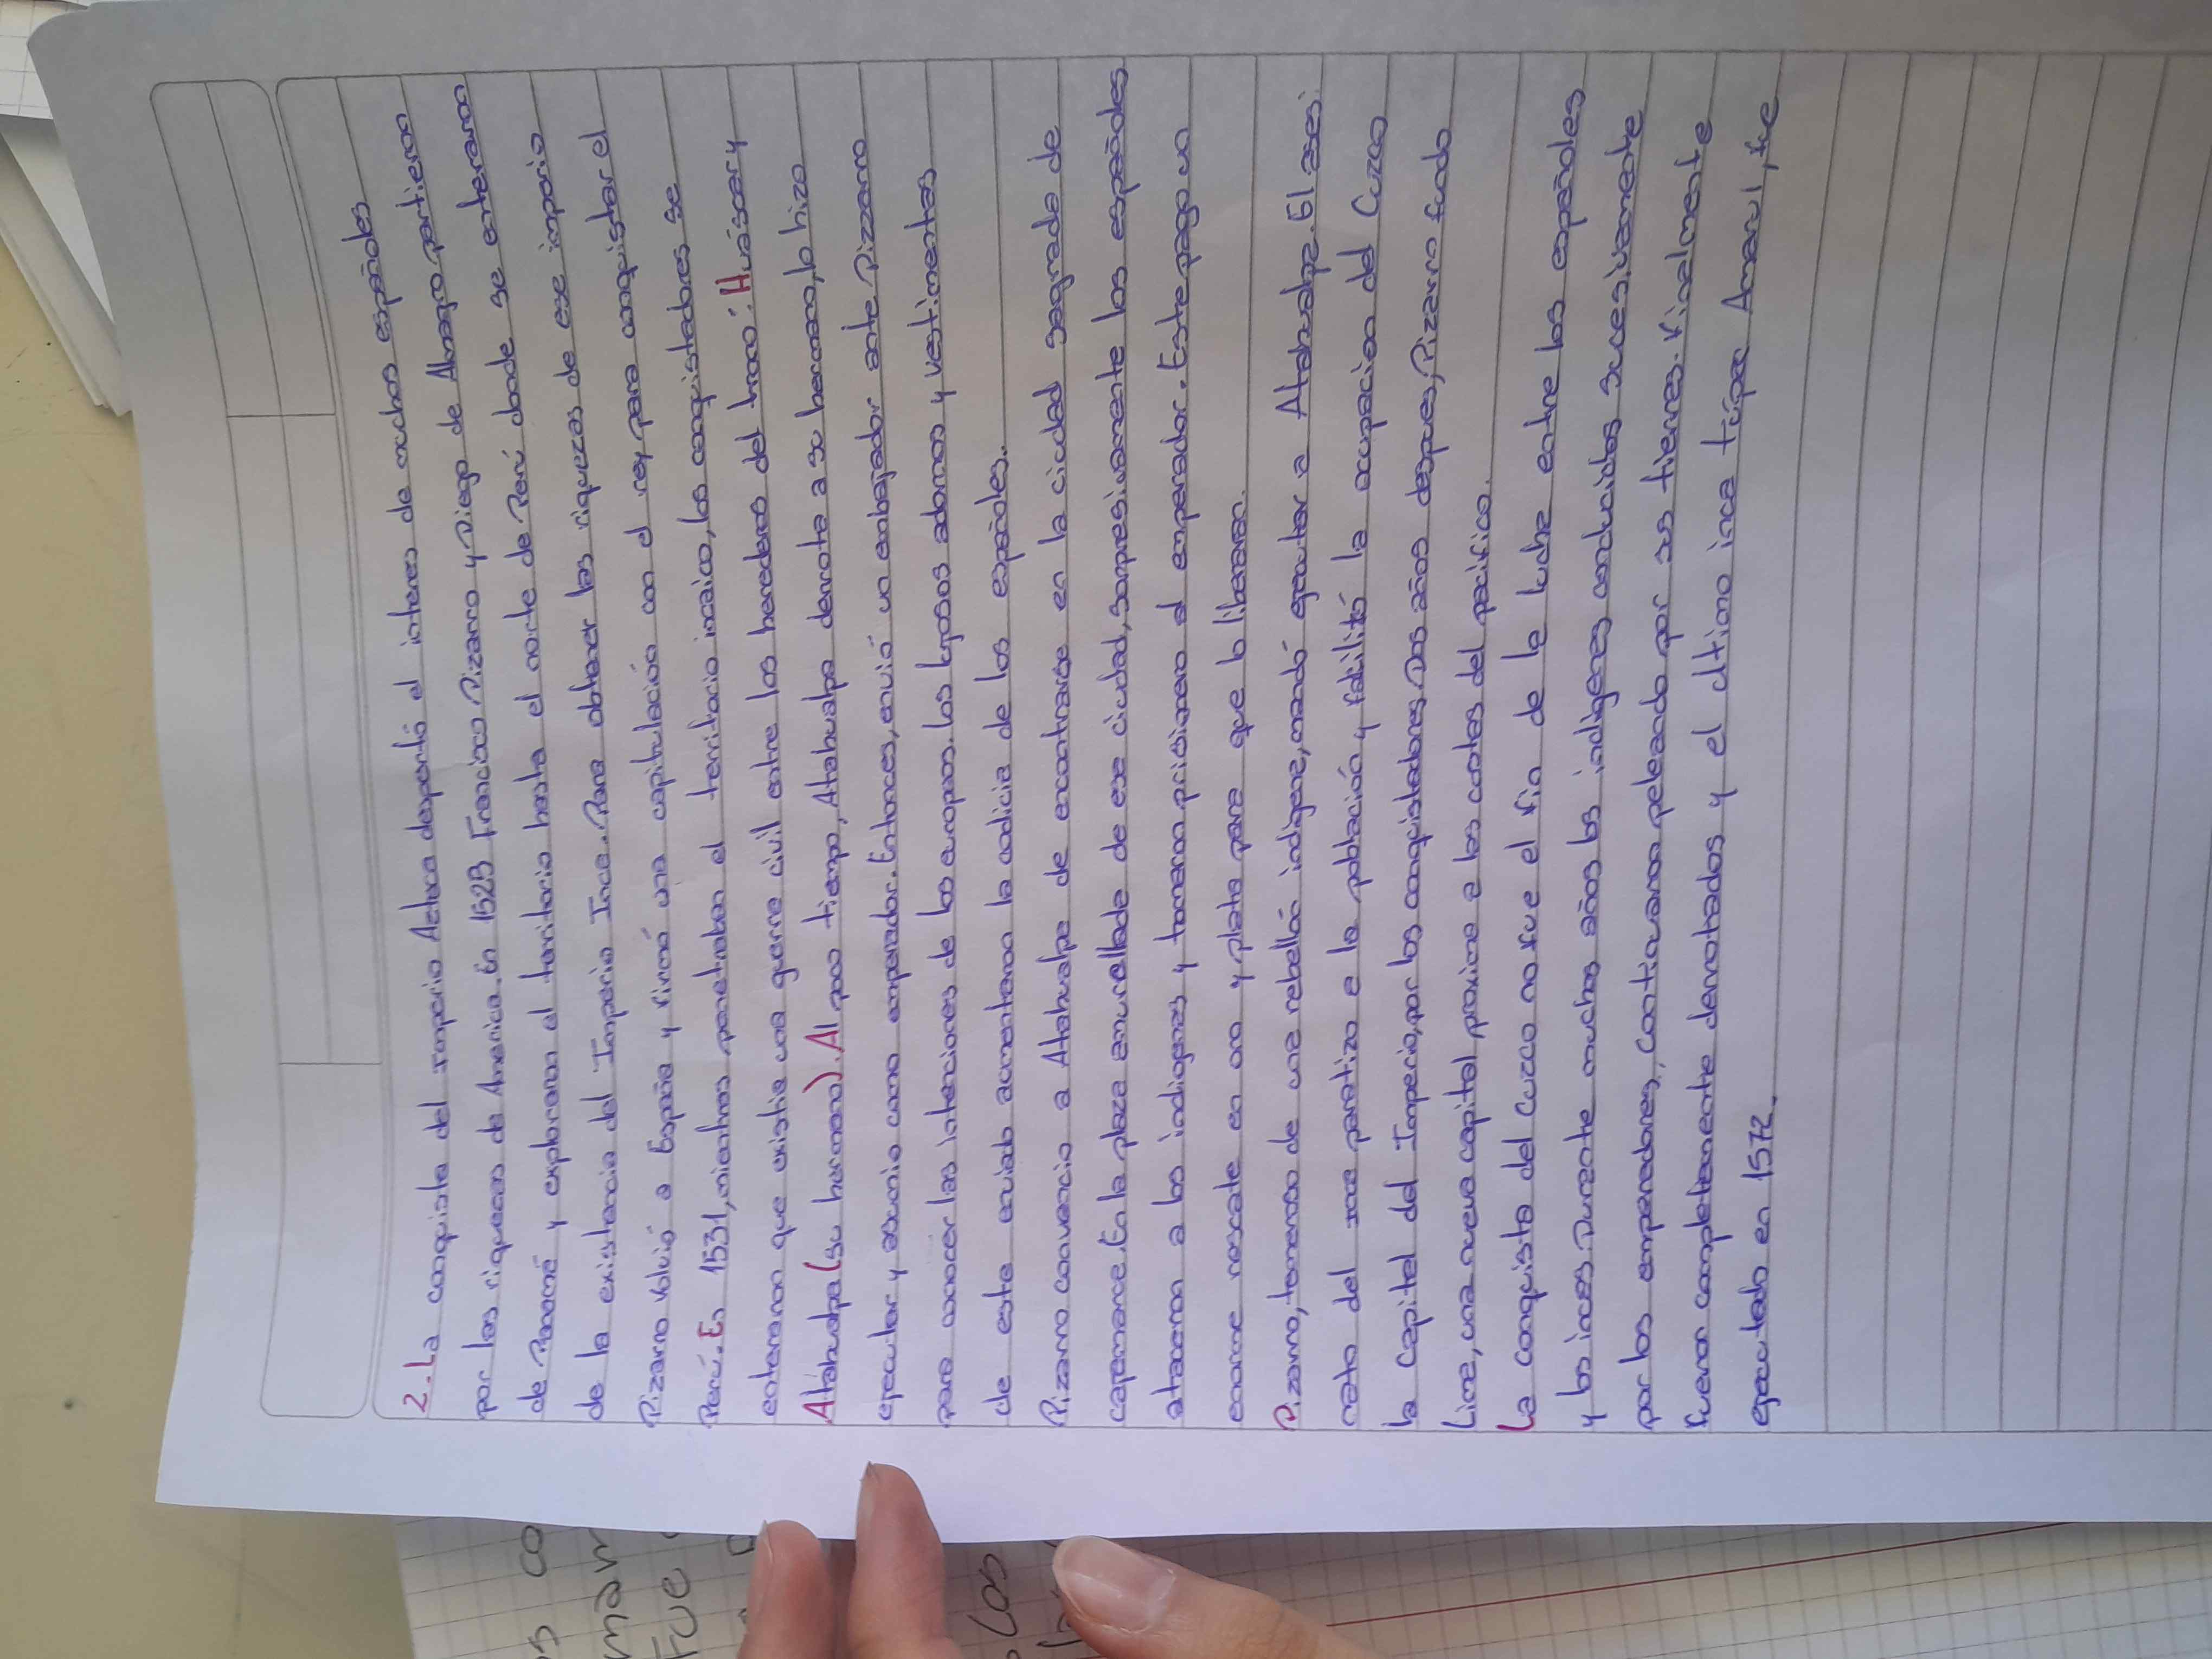 2. La conquista del Imperio Azteca despertó el interes de muchos españoles
por las riquezas de America. En 1523 Francisco Pizarro y Diego de Almagro partieron
de Panamá y exploraron el territorio hasta el norte de Perú donde se enteraron
de la existencia del Imperio Inca. Para obtener las riquezas de ese imperio
Pizarro volvió a España y firmó una capitulación con el rey para conquistar el
Perú. En 1531, mientras penetraban el territorio incaico, los conquistadores se
enteraron que existia una guerra civil entre los herederos del trono: Huáscar y
Atahualpa (su hermano). Al poco tiempo, Atahualpa derrota a su hermano, lo hizo
ejecutar y asumio como emperador. Entonces, envió un embajador ante Pizzarro
para conocer las intenciones de los europeos. Los lujosos adornos y vestimentas
de este enviado aumentaron la codicia de los españoles.
Pizarro convencio a Atahualpa de encontrarse en la ciudad sagrada de
Cajamarca. En la plaza amurallada de esa ciudad, sorpresivamente los españoles
atacaron a los indigenas y tomaron prisionero al emperador. Este pago un
enorme rescate en oro y plata para que lo liberaran.
Pizarro, temeroso de una rebelión indigena, mandó ejecutar a Atahualpa. El asesi
nato del inca paralizo a la población y facilitó la ocupacion del Cuzco
la Capital del Imperio, por los conquistadores. Dos años despues, Pizarro fundo
Lima, una nueva capital proxima a las costas del pacifico.
La conquista del Cuzco no fue el fin de la lucha entre los españoles
y los incas. Durante muchos años los indigenas conducidos sucesivamente
por los emperadores, continuaron peleando por sus tierras. Finalmente
fueron completamente derrotados y el ultimo inca túpac Amaru I, fue
ejecutado en 1572.